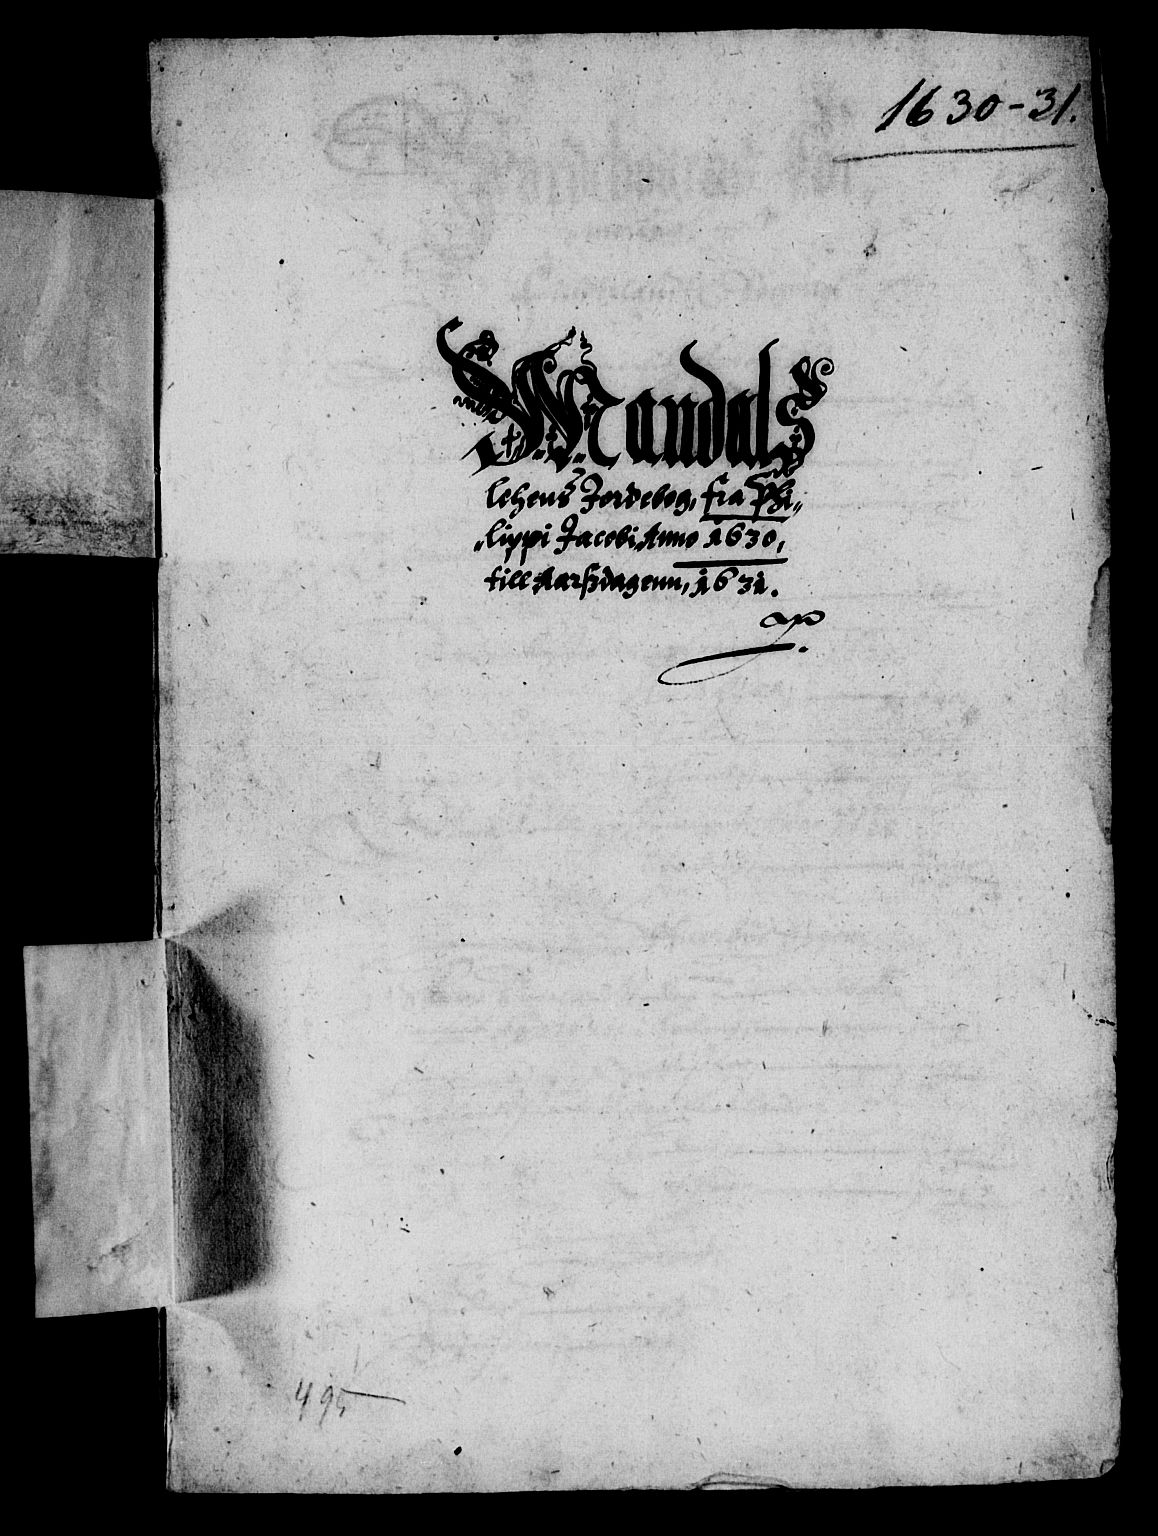 1630-31.
Mandals
lehens Jordebog, fra Phi„
„lippi Jacobi, Anno 1630,
till Aarsdagenn, 1631.
495